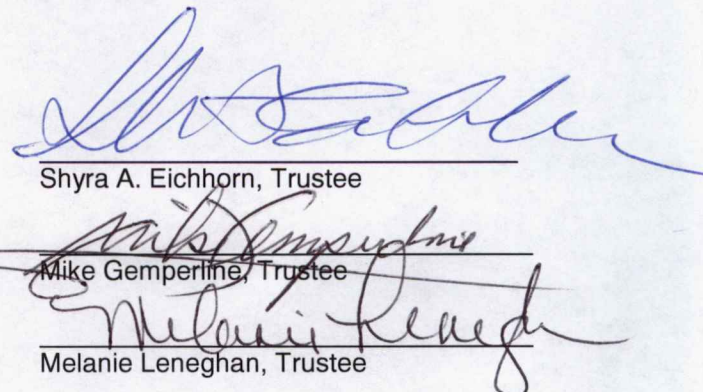 Shyra A. Eichhorn, Trustee
Mike Gemperline
Mike Gemperline, Trustee
Melanie Leneghan
Melanie Leneghan, Trustee